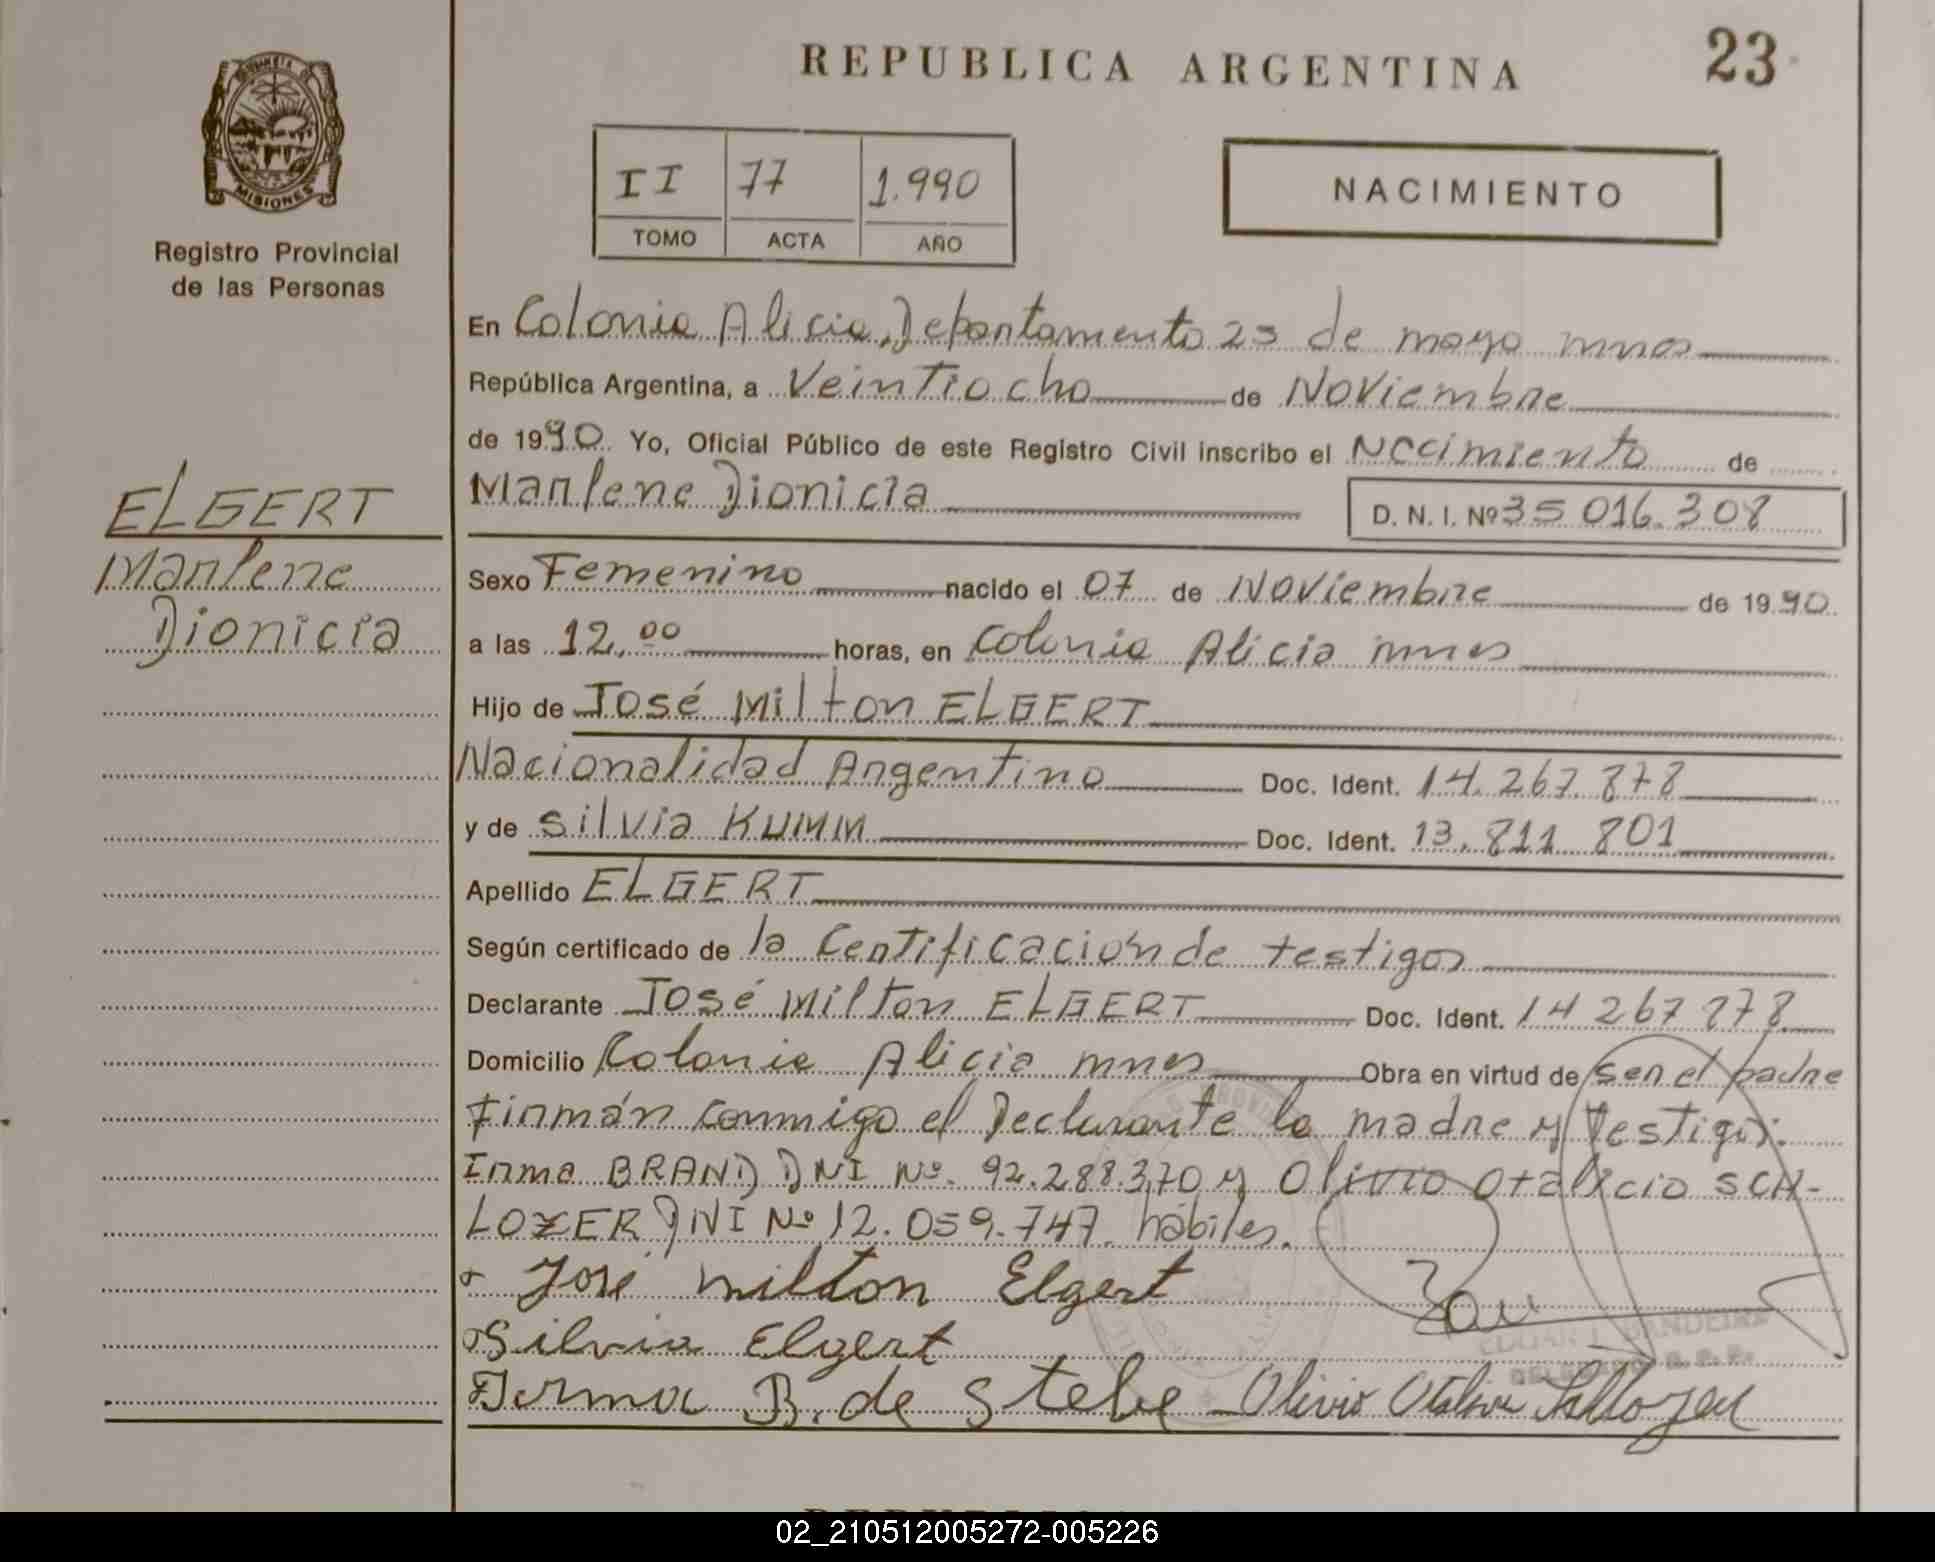 REPUBLICA ARGENTINA
23
MISIONES
Registro Provincial
de las Personas
II 77 1.990
TOMO ACTA AÑO
NACIMIENTO
ELGERT
Marlene
Dionicia
En Colonia Alicia, Departamento 25 de mayo mnes
República Argentina, a Veintiocho de Noviembre
de 1990. Yo, Oficial Público de este Registro Civil inscribo el Nacimiento de
Marlene Dionicia D. N. I. Nº 35 016.308
Sexo Femenino nacido el 07 de Noviembre de 1990
a las 12,00 horas, en Colonia Alicia mnes
Hijo de José Milton ELGERT
Nacionalidad Argentina Doc. Ident. 14.267.878
y de Silvia KUMM Doc. Ident. 13.811 801
Apellido ELGERT
Según certificado de la Certificación de testigos
Declarante José Milton ELGERT Doc. Ident. 14 267 878
Domicilio Colonia Alicia mnes Obra en virtud de ser el padre
Firmán conmigo el Declarante la madre y Testigos:
Irma BRAND DNI Nº. 92.288.370 y Olivio Otalicio SCH-
LOZER DNI Nº 12.059.747. hábiles.
José milton Elgert
Silvia Elgert
EDGAR J. BANDEIRA
DELEGADO R. P. P.
Irma B. de Stebe Olivio
02_210512005272-005226